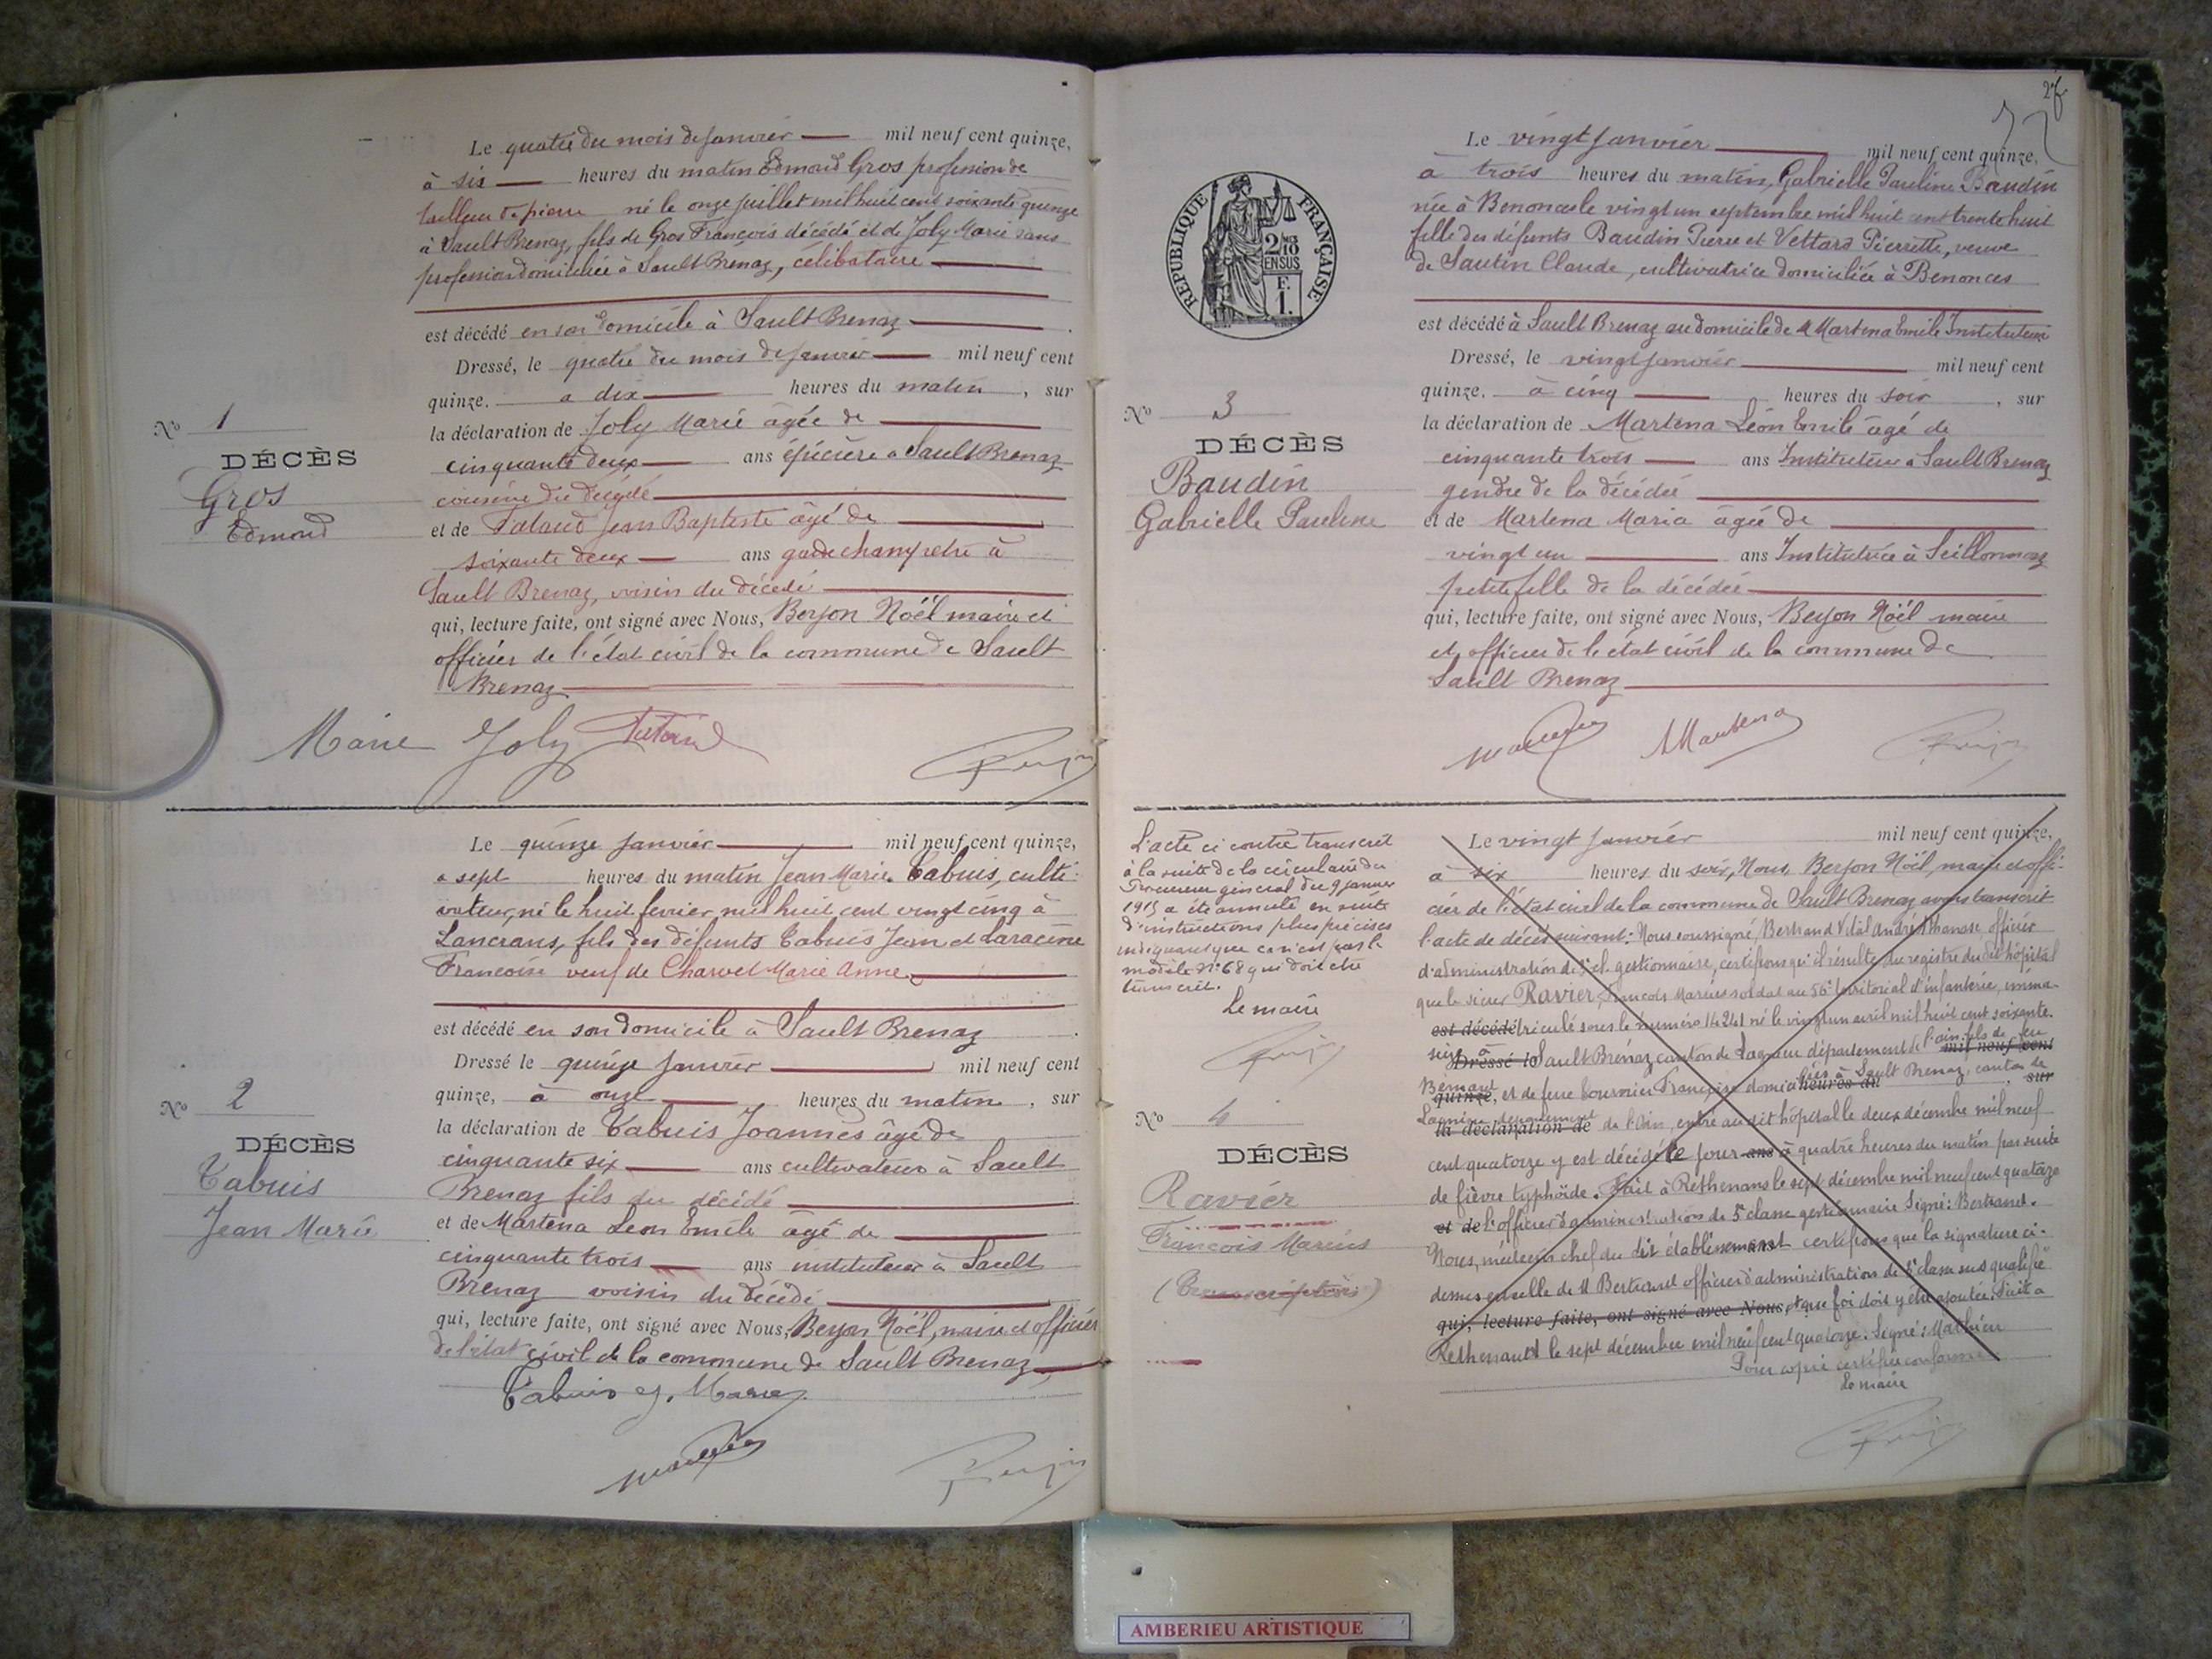 Le quatre du mois de Janvier mil neuf cent quinze,
à six heures du matin Edmond Gros profession de
tailleur de pierre né le onze juillet mil huit cent soixante quinze
à Sault Brenaz, fils de Gros François décédé et de Joly Marie sans
profession domiciliée à Sault Brenaz, célibataire
est décédé en son domicile à Sault Brenaz
Dressé, le quatre du mois de Janvier mil neuf cent
quinze. à dix heures du matin, sur
la déclaration de Joly Marie âgée de
cinquante deux ans épicière à Sault Brenaz
cousine du décédé
et de Jean Baptiste âgé de
soixante deux ans garde champetre à
Sault Brenaz, voisin du décédé
qui, lecture faite, ont signé avec Nous, Berjon Noël maire et
officier de l'état civil de la commune de Sault
Brenaz
Marie Joly
No 1
DÉCÈS
Gros
Edmond
Le quinze Janvier mil neuf cent quinze,
à sept heures du matin Jean Marie Tabuis, culti-
vateur, né le huit fevrier mil huit cent vingt cinq à
Lancrans, fils des défunts Tabuis Jean et
Françoise veuf de Charvet Marie Anne
est décédé en son domicile à Sault Brenaz
Dressé le quinze Janvier mil neuf cent
quinze, à onze heures du matin, sur
la déclaration de Tabuis Joannès âgé de
cinquante six ans cultivateur à Sault
Brenaz fils du décédé
et de Martena Leon Emile âgé de
cinquante trois ans instituteur à Sault
Brenaz voisin du décédé
qui, lecture faite, ont signé avec Nous, Berjon Noël, maire et officier
de l'état civil de la commune de Sault Brenaz
No 2
DÉCÈS
Tabuis
Jean Marie
Le vingt Janvier mil neuf cent quinze,
à trois heures du matin, Gabrielle Pauline Baudin
née à Benonces le vingt un septembre mil huit cent trente huit
fille des défunts Baudin Pierre et Vettard Pierrette, veuve
de Sautin Claude, cultivatrice domiciliée à Benonces
RÉPUBLIQUE FRANÇAISE
2/10 EN SUS
F. 1.
est décédé à Sault Brenaz au domicile de M Martena Emile Instituteur
Dressé, le vingt Janvier mil neuf cent
quinze. à cinq heures du soir, sur
la déclaration de Martena Léon Emile âgé de
cinquante trois ans Instituteur à Sault Brenaz
gendre de la décédée
et de Martena Maria âgée de
vingt un ans Institutrice à Seillonnaz
petite fille de la décédée
qui, lecture faite, ont signé avec Nous, Berjon Noël maire
et officier de l'état civil de la commune de
Sault Brenaz
No 3
DÉCÈS
Baudin
Gabrielle Pauline
L'acte ci contre transcrit
à la suite de la circulaire du
Procureur général du 9 janvier
1915 a été annulé en suite
d'instructions plus précises
indiquant que ce n'est pas le
modèle No 68 qui doit être
transcrit.
Le maire
No 4
DÉCÈS
Ravier
François Marius
(Transcription)
Le vingt Janvier mil neuf cent quinze,
à six heures du soir, Nous, Berjon Noël, maire et offi-
cier de l'état civil de la commune de Sault Brenaz avons transcrit
l'acte de décès suivant: Nous soussigné, Bertrand Vital André Athanase officier
d'administration de 3e cl. gestionnaire, certifions qu'il résulte du registre du dit hôpital
que le sieur Ravier, François Marius soldat au 56e territorial d'infanterie, imma-
est décédé triculé sous le numéro 14241 né le vingt un avril mil huit cent soixante
seize à Dressé le Sault Brenaz canton de Lagnieu département de l'ain, fils de feu mil neuf cent
Bernard quinze, et de feue Françoise domiciliés à Sault Brenaz, canton de heures du sur
Lagnieu département la déclaration de de l'Ain, entré au dit hôpital le deux décembre mil neuf
cent quatorze y est décédé le jour ans à quatre heures du matin par suite
de fièvre typhoïde. Fait à Réthenans le sept décembre mil neuf cent quatorze
et de l'officier d'administration de 3e classe gestionnaire Signé: Bertrand.
Nous, médecin chef du dit établissement certifions que la signature ci-
dessus est celle de M Bertrand officier d'administration de 3e classe sus qualifié
qui, lecture faite, ont signé avec Nous, et que foi doit y être ajoutée. Fait à
Rethenans le sept décembre mil neuf cent quatorze. Signé: Mathieu
Pour copie certifiée conforme
Le maire
AMBERIEU ARTISTIQUE